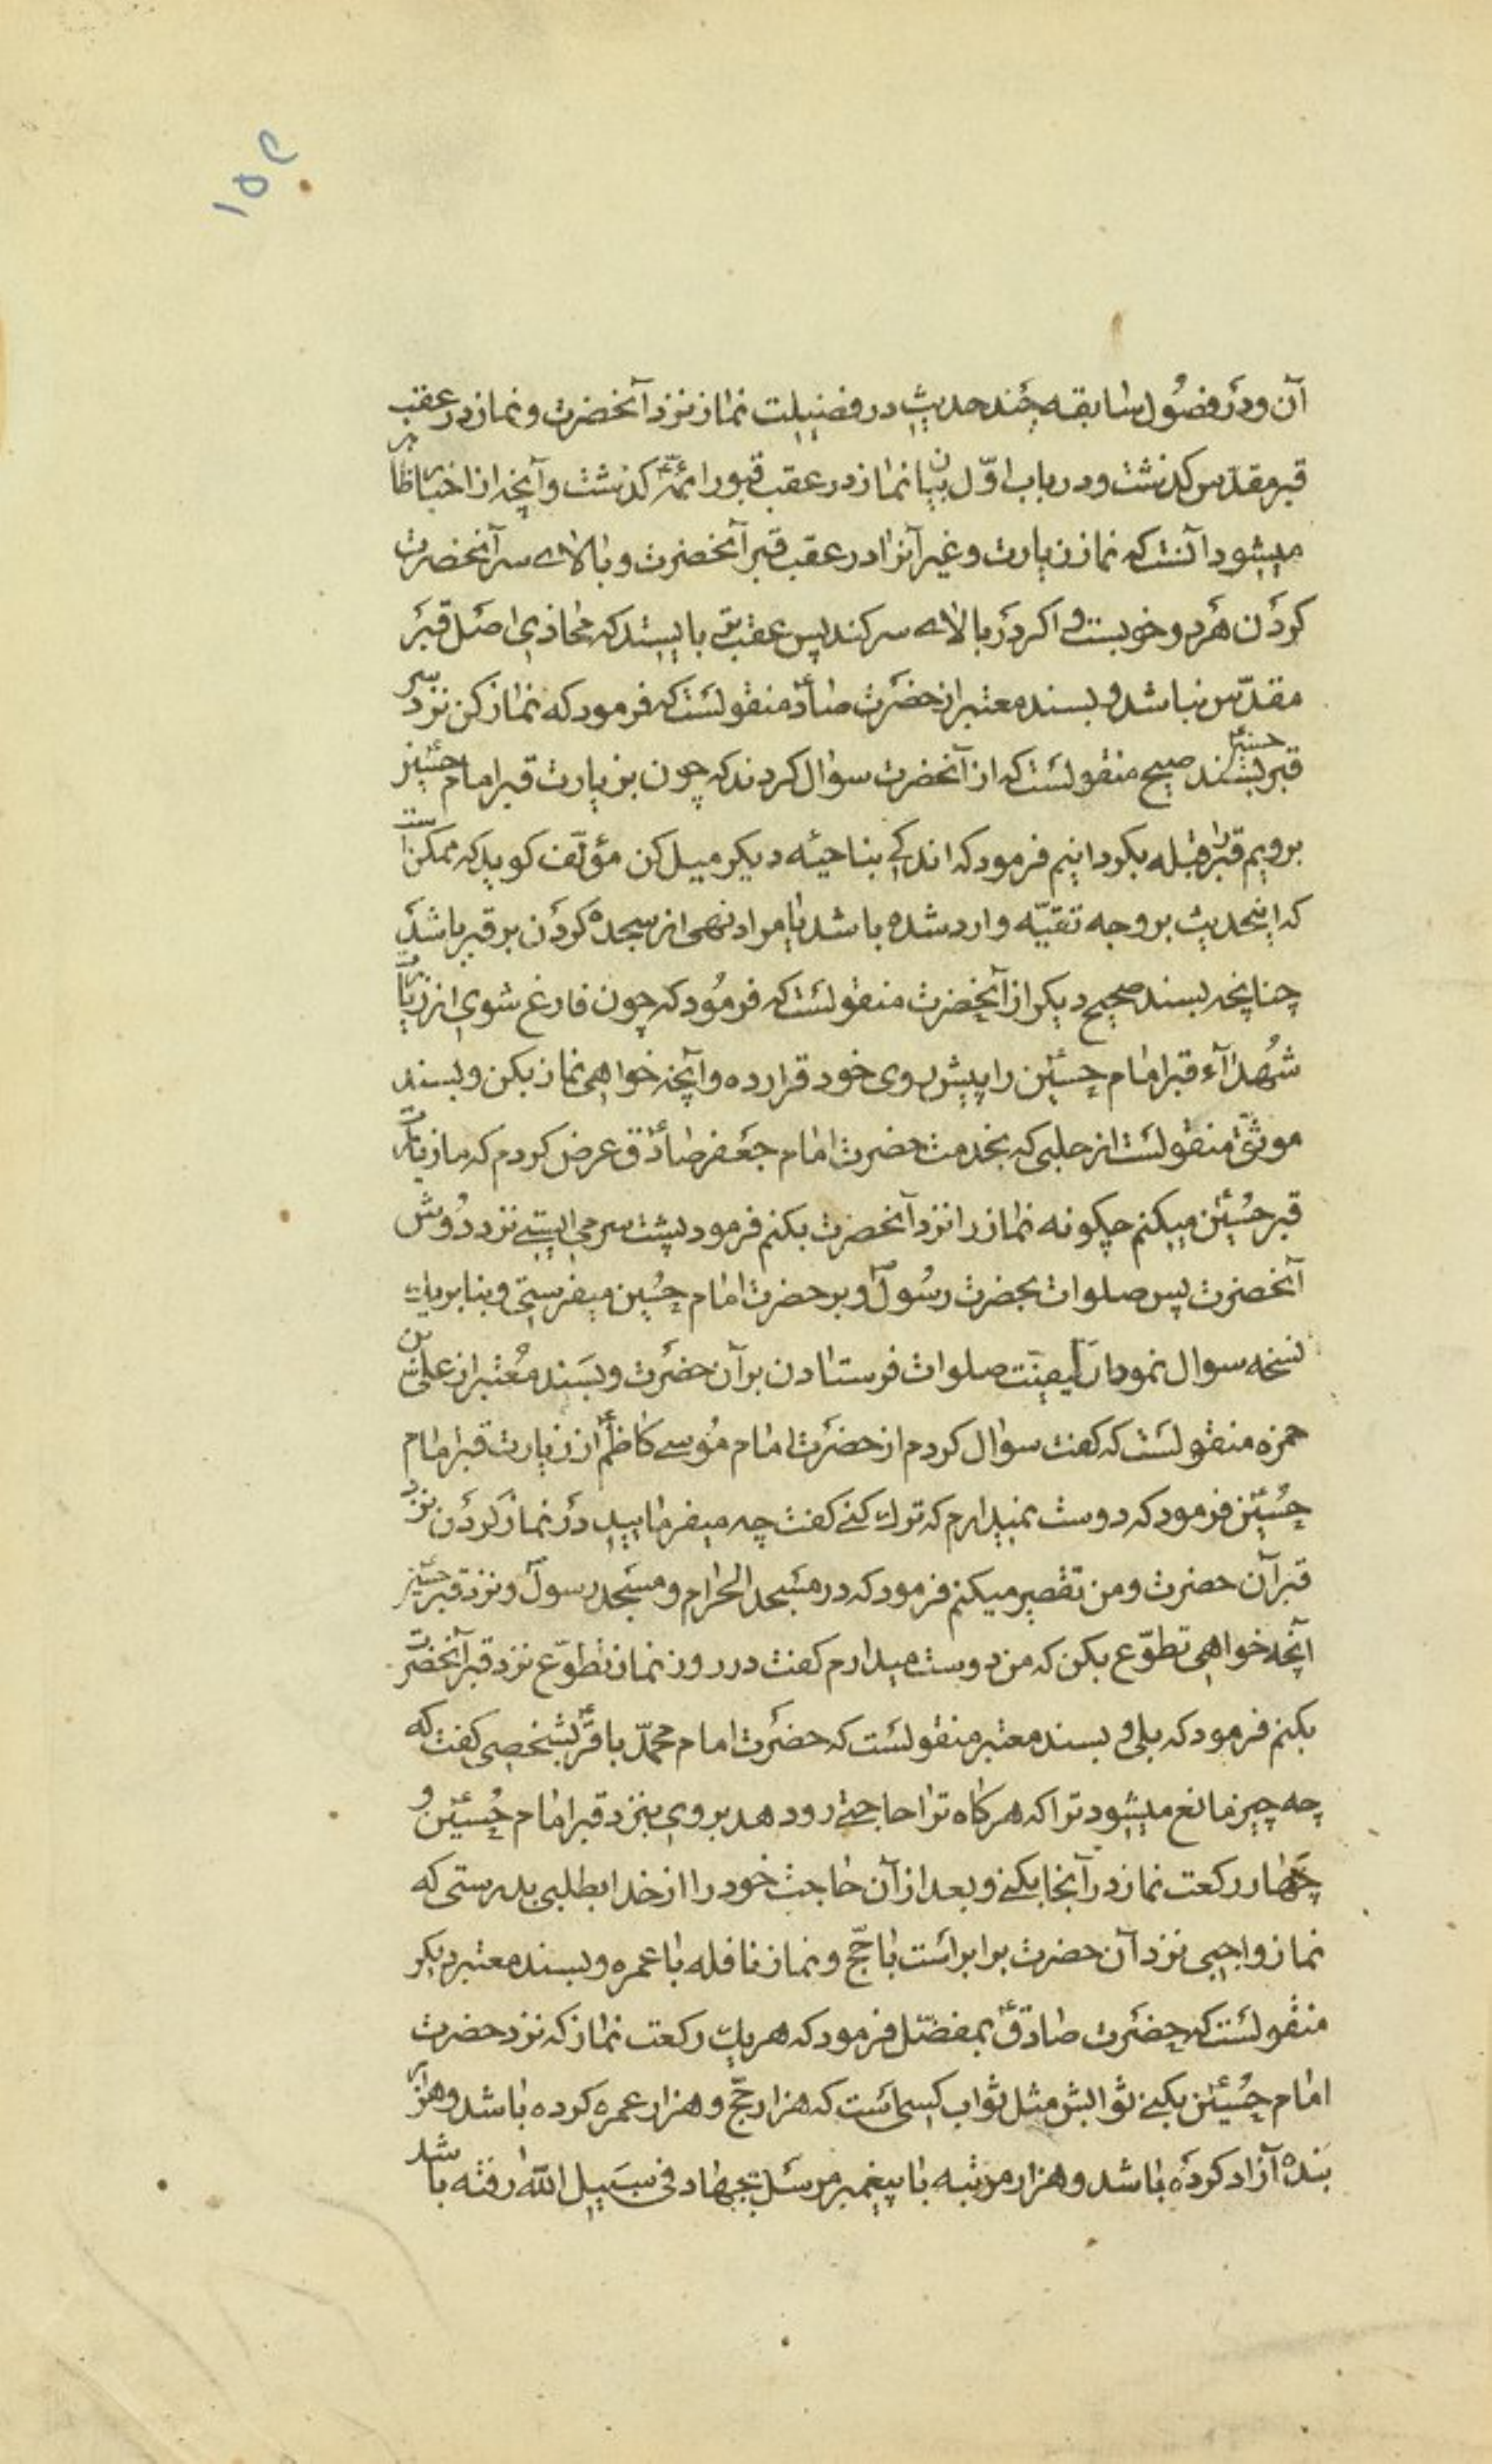 ۱۵۲
آن ودر فصول سابقه چند حدیث در فضیلت نماز نزد آنحضرت و نماز در عقب
قبر مقدّس کذشت ودر باب اوّل بیان نماز در عقب قبور ائمّه کذشت وآنچه از اخبار ظاهر
میشود آنست که نماز زیارت وغیر آنرا در عقب قبر آنحضرت وبالای سر آنحضرت
کردن هر دو خوبست و اکر در بالای سر کند پس عقب‌تر بایستد که محاذی اصل قبر
مقدّس نباشد و بسند معتبر از حضرت صادق منقولست که فرمود که نماز کن نزد سر
قبر حسین بسند صحیح منقولست که از آنحضرت سوال کردند که چون بزیارت قبر امام حسین
برویم قبر را قبله بکردانیم فرمود که اندکی بناحیه دیکر میل کن مؤلّف کوید که ممکن است
که اینحدیث بر وجه تقیّه وارد شده باشد یا مراد نهی از سجده کردن بر قبر باشد
چنانچه بسند صحیح دیکر از آنحضرت منقولست که فرمود که چون فارغ شوی از زیارت
شهدآء قبر امام حسین را پیش روی خود قرار ده وآنچه خواهی نماز بکن و بسند
موثّق منقولست از حلبی که بخدمت حضرت امام جعفر صادق عرض کردم که ما زیارت
قبر حسین میکنم چکونه نماز را نزد آنحضرت بکنم فرمود پشت سر می ایستی نزد دوش
آنحضرت پس صلوات بحضرت رسول و بر حضرت امام حسین میفرستی وبنابر یک
نسخه سوال نمود از کیفیّت صلوات فرستادن بر آن حضرت و بسند معتبر از علی بن
حمزه منقولست که کفت سوال کردم از حضرت امام موسی کاظم از زیارت قبر امام
حسین فرمود که دوست نمیدارم که ترک کنی کفت چه میفرمایید در نماز کردن نزد
قبر آن حضرت ومن تقصیر میکنم فرمود که در مسجد الحرام ومسجد رسول ونزد قبر حسین
آنچه خواهی تطوّع بکن که من دوست میدارم کفت در روز نماز تطوّع نزد قبر آنحضرت
بکنم فرمود که بلی و بسند معتبر منقولست که حضرت امام محمّد باقر بشخصی کفت که
چه چیز مانع میشود ترا که هرکاه ترا حاجتی رو دهد بروی بنزد قبر امام حسین و
چهار رکعت نماز در آنجا بکنی وبعد از آن حاجت خود را از خدا بطلبی بدرستی که
نماز واجبی نزد آن حضرت برابر است با حجّ ونماز نافله با عمره وبسند معتبر دیکر
منقولست که حضرت صادق بمفضّل فرمود که هر یک رکعت نماز که نزد حضرت
امام حسین بکنی ثوابش مثل ثواب کسی است که هزار حجّ و هزار عمره کرده باشد وهزار
بنده آزاد کرده باشد وهزار مرتبه با پیغمبر مرسل بجهاد فی سبیل الله رفته باشد